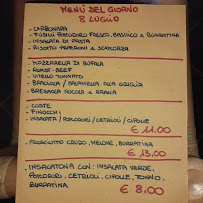 MENÙ DEL GIORNO
8 LUGLIO
- CARBONARA
- FUSILI POMODORO FRESCO, BASILICO & BURRATINA
- INSALATA DI PASTA
- RISOTTO PEPERONI & SCAMORZA
- MOZZARELLA DI BUFALA
- ROAST-BEEF
- VITELLO TONNATO
- BRACIOLA / SALAMELLA ALLA GRIGLIA
- BRESAOLA RUCOLA & GRANA
- COSTE
- FINOCCHI
- INSALATA / POMODORI / CETRIOLI / CIPOLLE
€ 11.00
- PROSCIUTTO CRUDO, MELONE, BURRATINA
€ 13,00
- INSALATONA CON: INSALATA VERDE,
POMODORI, CETRIOLI, CIPOLLE, TONNO,
BURRATINA
€ 8,00